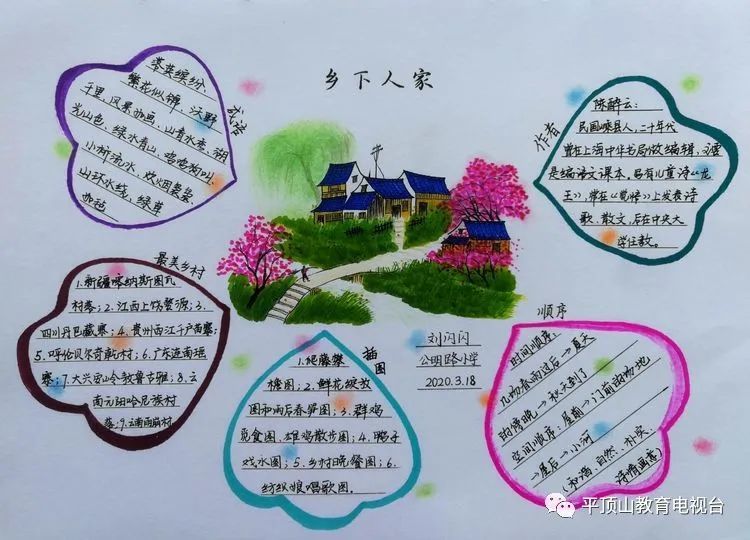 乡下人家
成语
落英缤纷、
繁花似锦、沃野
千里、风景如画、山青水秀、湖
光山色、绿水青山、鸡鸣狗叫
小桥流水、炊烟袅袅、
山环水绕、绿草
如毯
作者
陈醉云：
民国嵊县人，二十年代
曾在上海中华书局做编辑，
是编语文课本，
王》，常在《觉悟》上发表诗
歌、散文，后在中央大
学任教。
最美乡村
1.新疆喀纳斯图瓦
村寨；2.江西上饶婺源；3.
四川丹巴藏寨；4.贵州西江千户苗寨；
5.呼伦贝尔奇乾村；6.广东连南瑶
寨；7.大兴安岭敖鲁古雅；8.云
南元阳哈尼族村
落；9.云南雨崩村
插图
1.爬藤攀
檐图；2.鲜花绽放
图和雨后春笋图；3.群鸡
觅食图、雄鸡散步图；4.鸭子
戏水图；5.乡村晚餐图；6.
纺织娘唱歌图。
刘闪闪
公明路小学
2020.3.18
顺序
时间顺序：
几场春雨过后→夏天
的傍晚→秋天到了
空间顺序：屋前→门前的场地
→屋后→小河
（和谐、自然、朴实、
诗情画意）
平顶山教育电视台